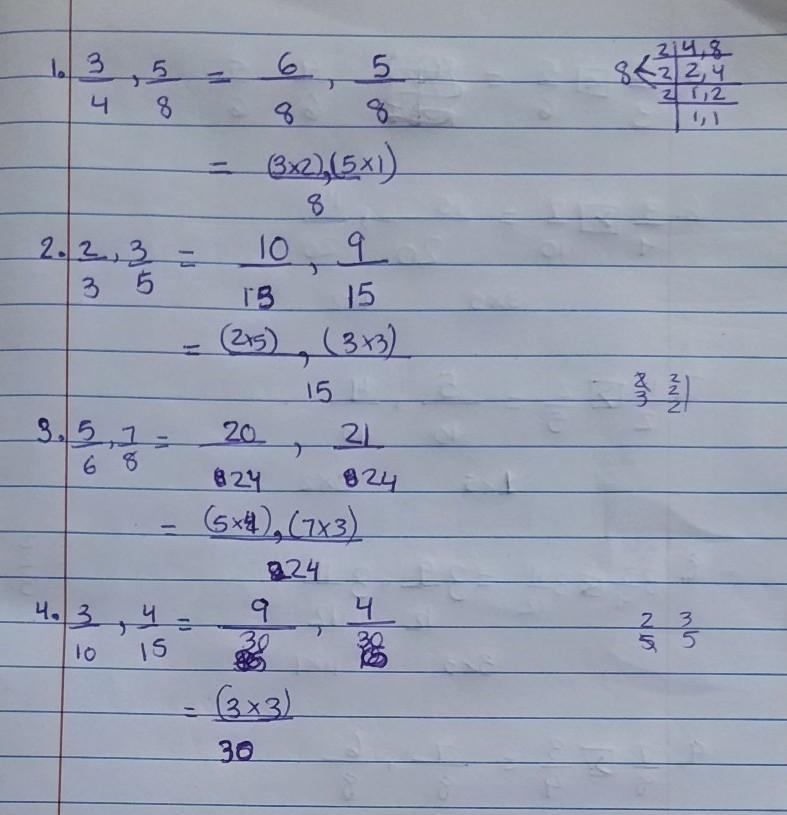 1. 3/4, 5/8 = 6/8, 5/8
= (3x2),(5x1)/8
8 < 2|4,8
2|2,4
2|1,2
|1,1
2. 2/3, 3/5 = 10/15, 9/15
= (2x5), (3x3)/15
2 2
3 2
2
3. 5/6, 7/8 = 20/24, 21/24
= (5x4), (7x3)/24
4. 3/10, 4/15 = 9/30, 4/30
= (3x3)/30
2 3
5 5